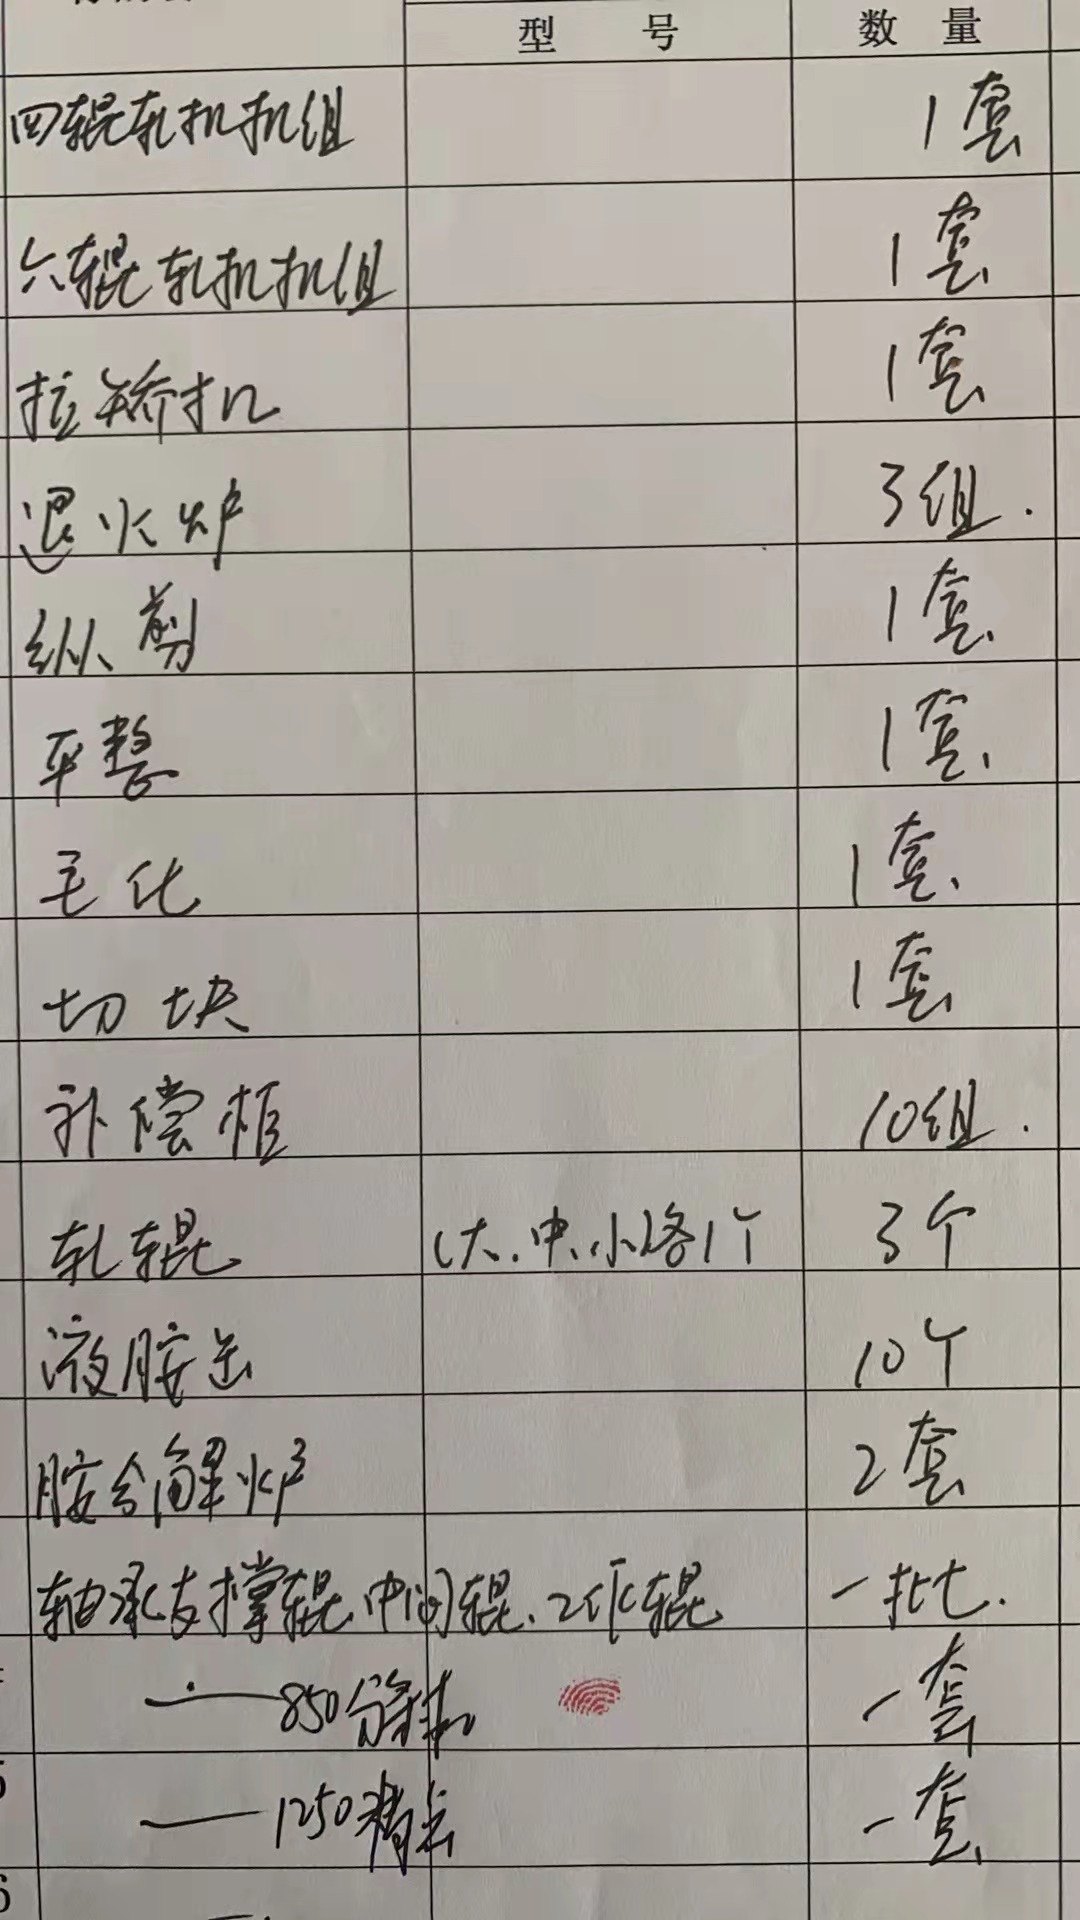 型 号 数 量
四辊轧机机组 1套
六辊轧机机组 1套
拉矫机 1套
退火炉 3组.
纵剪 1套
平整 1套
毛化 1套
切块 1套
补偿柜 10组.
轧辊 (大.中.小各1个 3个
液胺缶 10个
胺分解炉 2套
轴承支撑辊.中间辊.工作辊 一批.
850分 一套
1250 一套